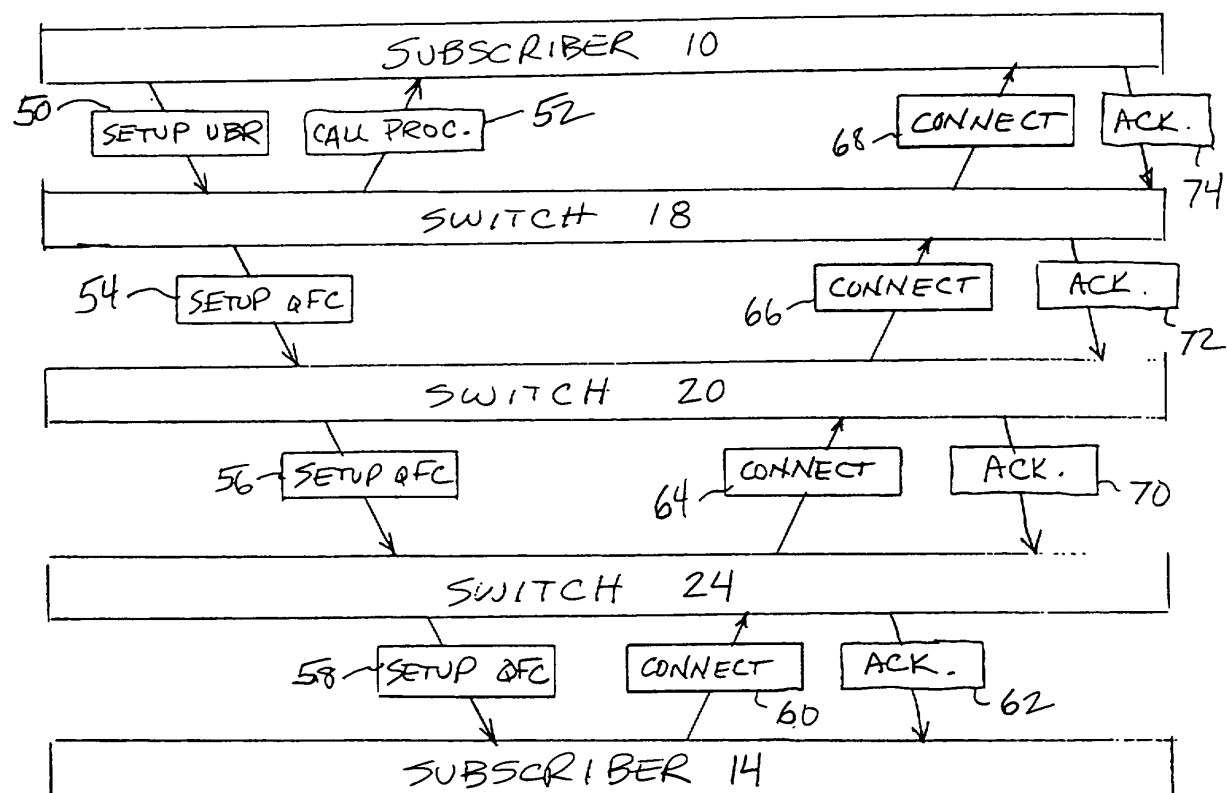 SUBSCRIBER 10
50 SETUP UBR
CALL PROC. 52
68 CONNECT
ACK. 74
SWITCH 18
54 SETUP QFC
66 CONNECT
ACK. 72
SWITCH 20
56 SETUP QFC
64 CONNECT
ACK. 70
SWITCH 24
58 SETUP QFC
CONNECT 60
ACK. 62
SUBSCRIBER 14